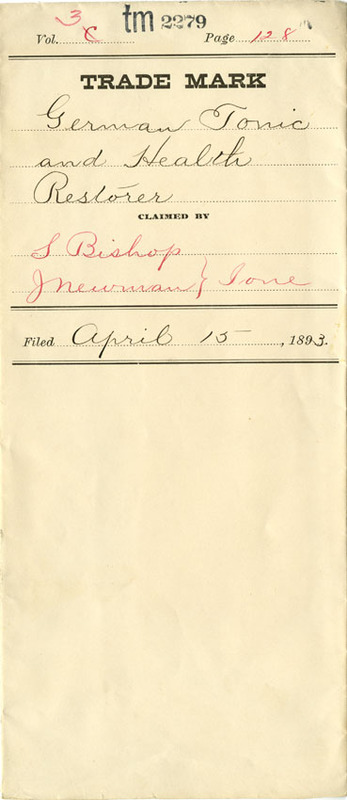 tm 2279
3
Vol. C Page 128
TRADE MARK
German Tonic
and Health
Restorer
CLAIMED BY
S Bishop
J Newman } Ione
Filed April 15, 1893.